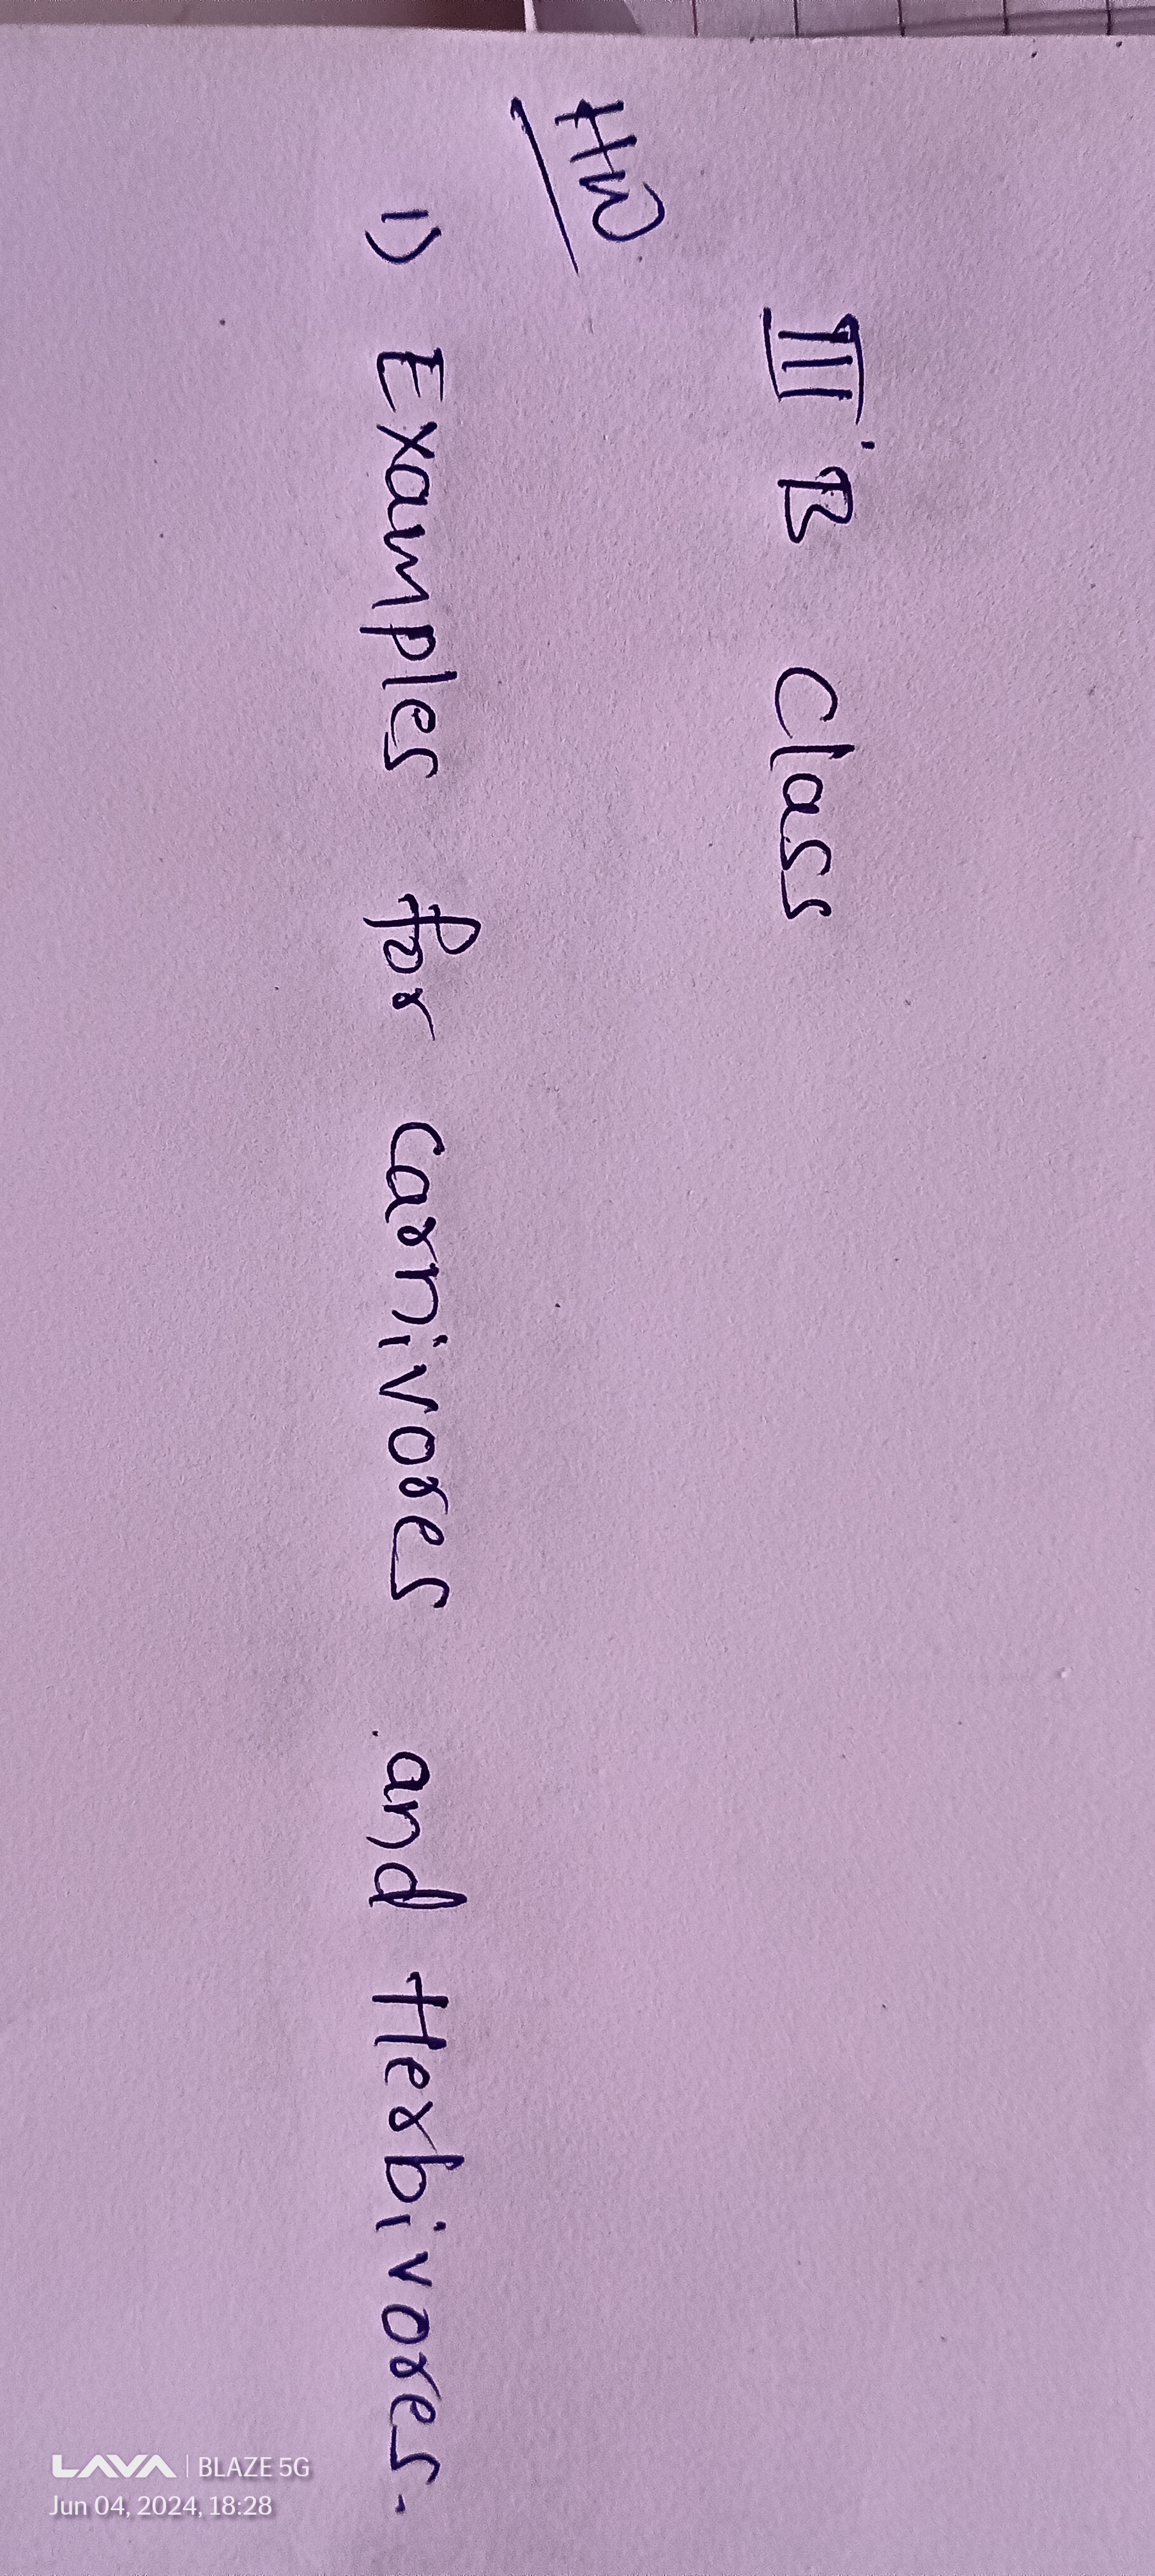 III B Class
HW
1) Examples for carnivores and Herbivores.
LAVA | BLAZE 5G
Jun 04, 2024, 18:28